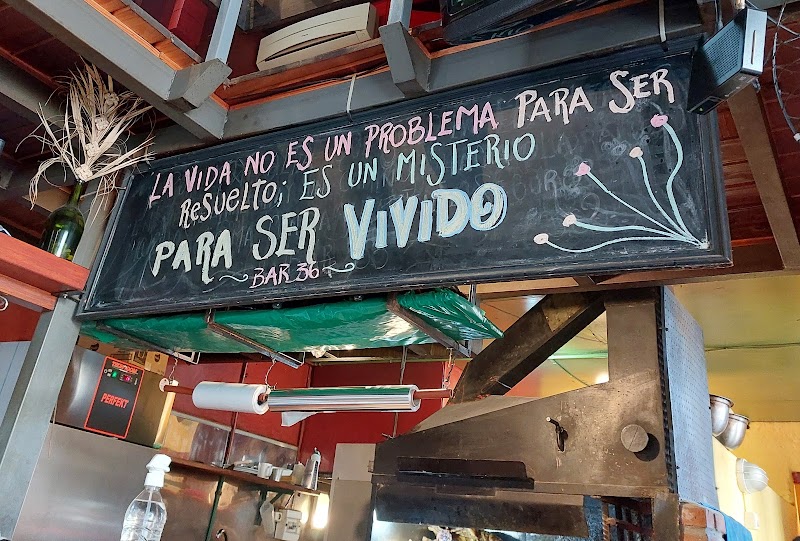 LA VIDA NO ES UN PROBLEMA PARA SER
RESUELTO; ES UN MISTERIO
PARA SER VIVIDO
BAR 36
PERFEKT